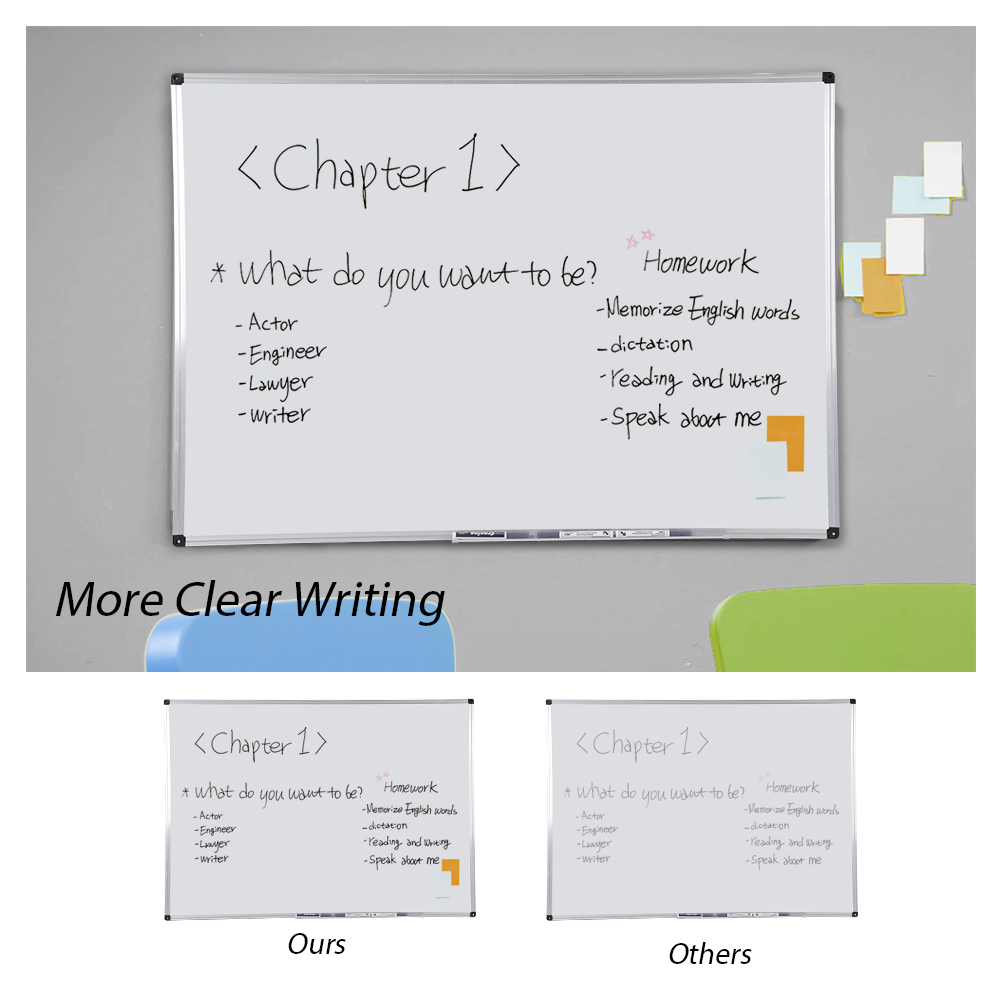 <Chapter 1>
* What do you want to be?
- Actor
- Engineer
- Lawyer
- writer
Homework
- Memorize English words
- dictation
- reading and writing
- Speak about me
More Clear Writing
<Chapter 1>
* What do you want to be?
- Actor
- Engineer
- Lawyer
- writer
Homework
- Memorize English words
- dictation
- reading and writing
- Speak about me
Ours
<Chapter 1>
* What do you want to be?
- Actor
- Engineer
- Lawyer
- writer
Homework
- Memorize English words
- dictation
- reading and writing
- Speak about me
Others